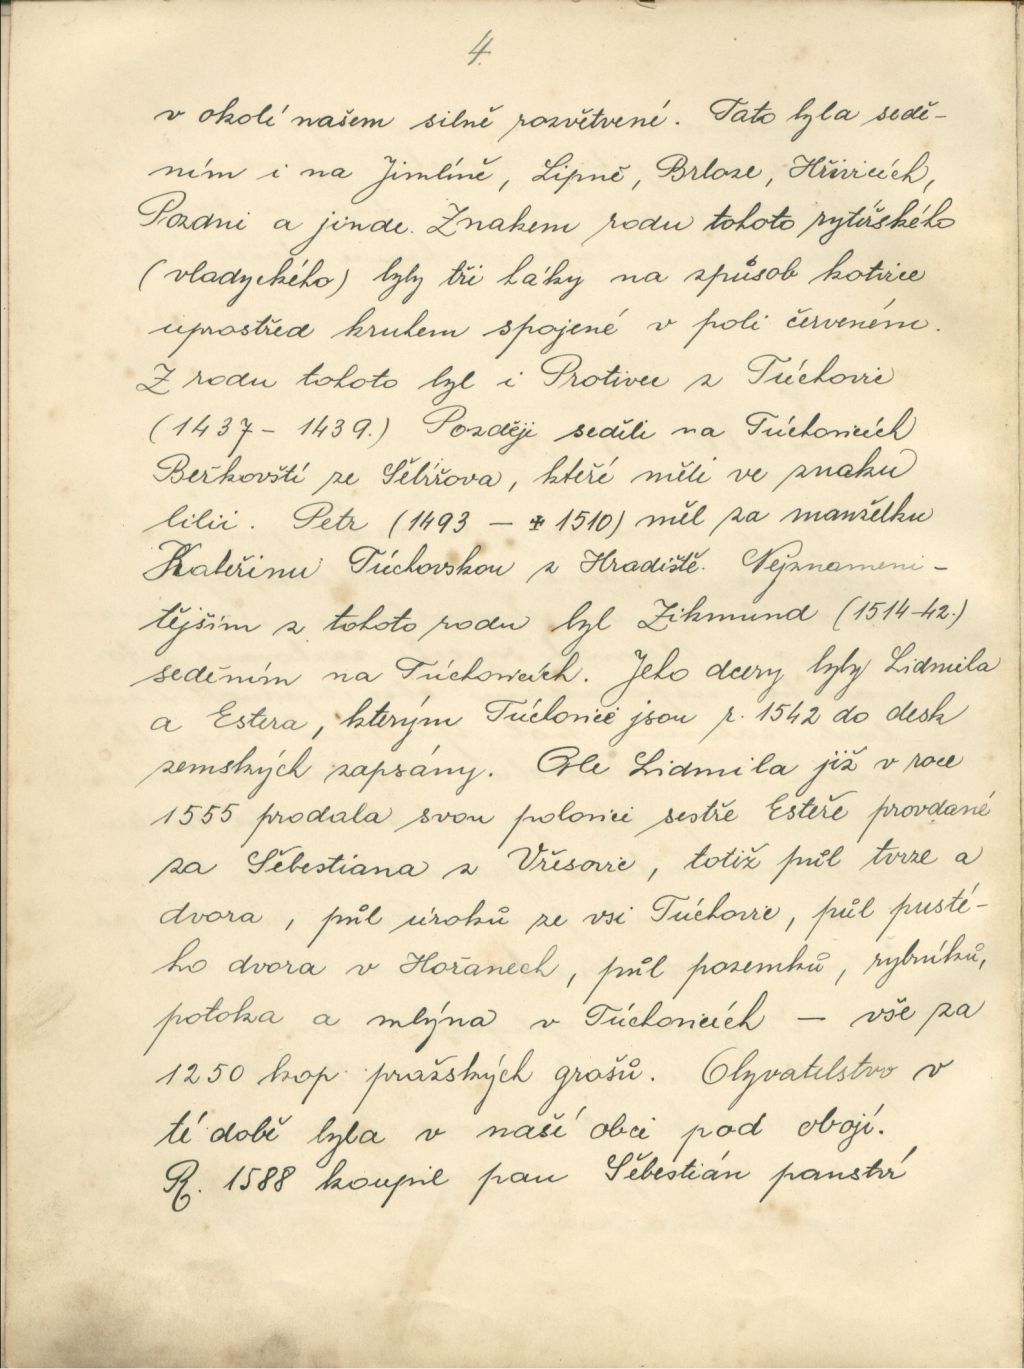 4.
v okolí našem silně rozvětvené. Tato byla sedě-
ním i na Jimlíně, Lipně, Brloze, Hřivicích,
Pozdni a jinde. Znakem rodu tohoto rytířského
(vladyckého) byly tři háky na způsob kotvice
uprostřed kruhem spojené v poli červeném.
Z rodu tohoto byl i Protivec z Túchovic
(1437 – 1439.) Později seděli na Túchovicích
Beřkovští ze Šebířova, kteří měli ve znaku
lilii. Petr (1493 – ✠ 1510) měl za manželku
Kateřinu Túchovskou z Hradiště. Nejznameni-
tějším z tohoto rodu byl Zikmund (1514-42.)
seděním na Túchovicích. Jeho dcery byly Lidmila
a Estera, kterým Túchovice jsou r. 1542 do desk
zemských zapsány. Ale Lidmila již v roce
1555 prodala svou polovici sestře Esteře provdané
za Šebestiana z Vřesovic, totiž půl tvrze a
dvora, půl úroků ze vsi Túchovic, půl pusté-
ho dvora v Hořanech, půl pozemků, rybníků,
potoka a mlýna v Túchovicích – vše za
1250 kop pražských grošů. Obyvatelstvo v
té době byla v naší obci pod obojí.
R. 1588 koupil pan Šebestián panství